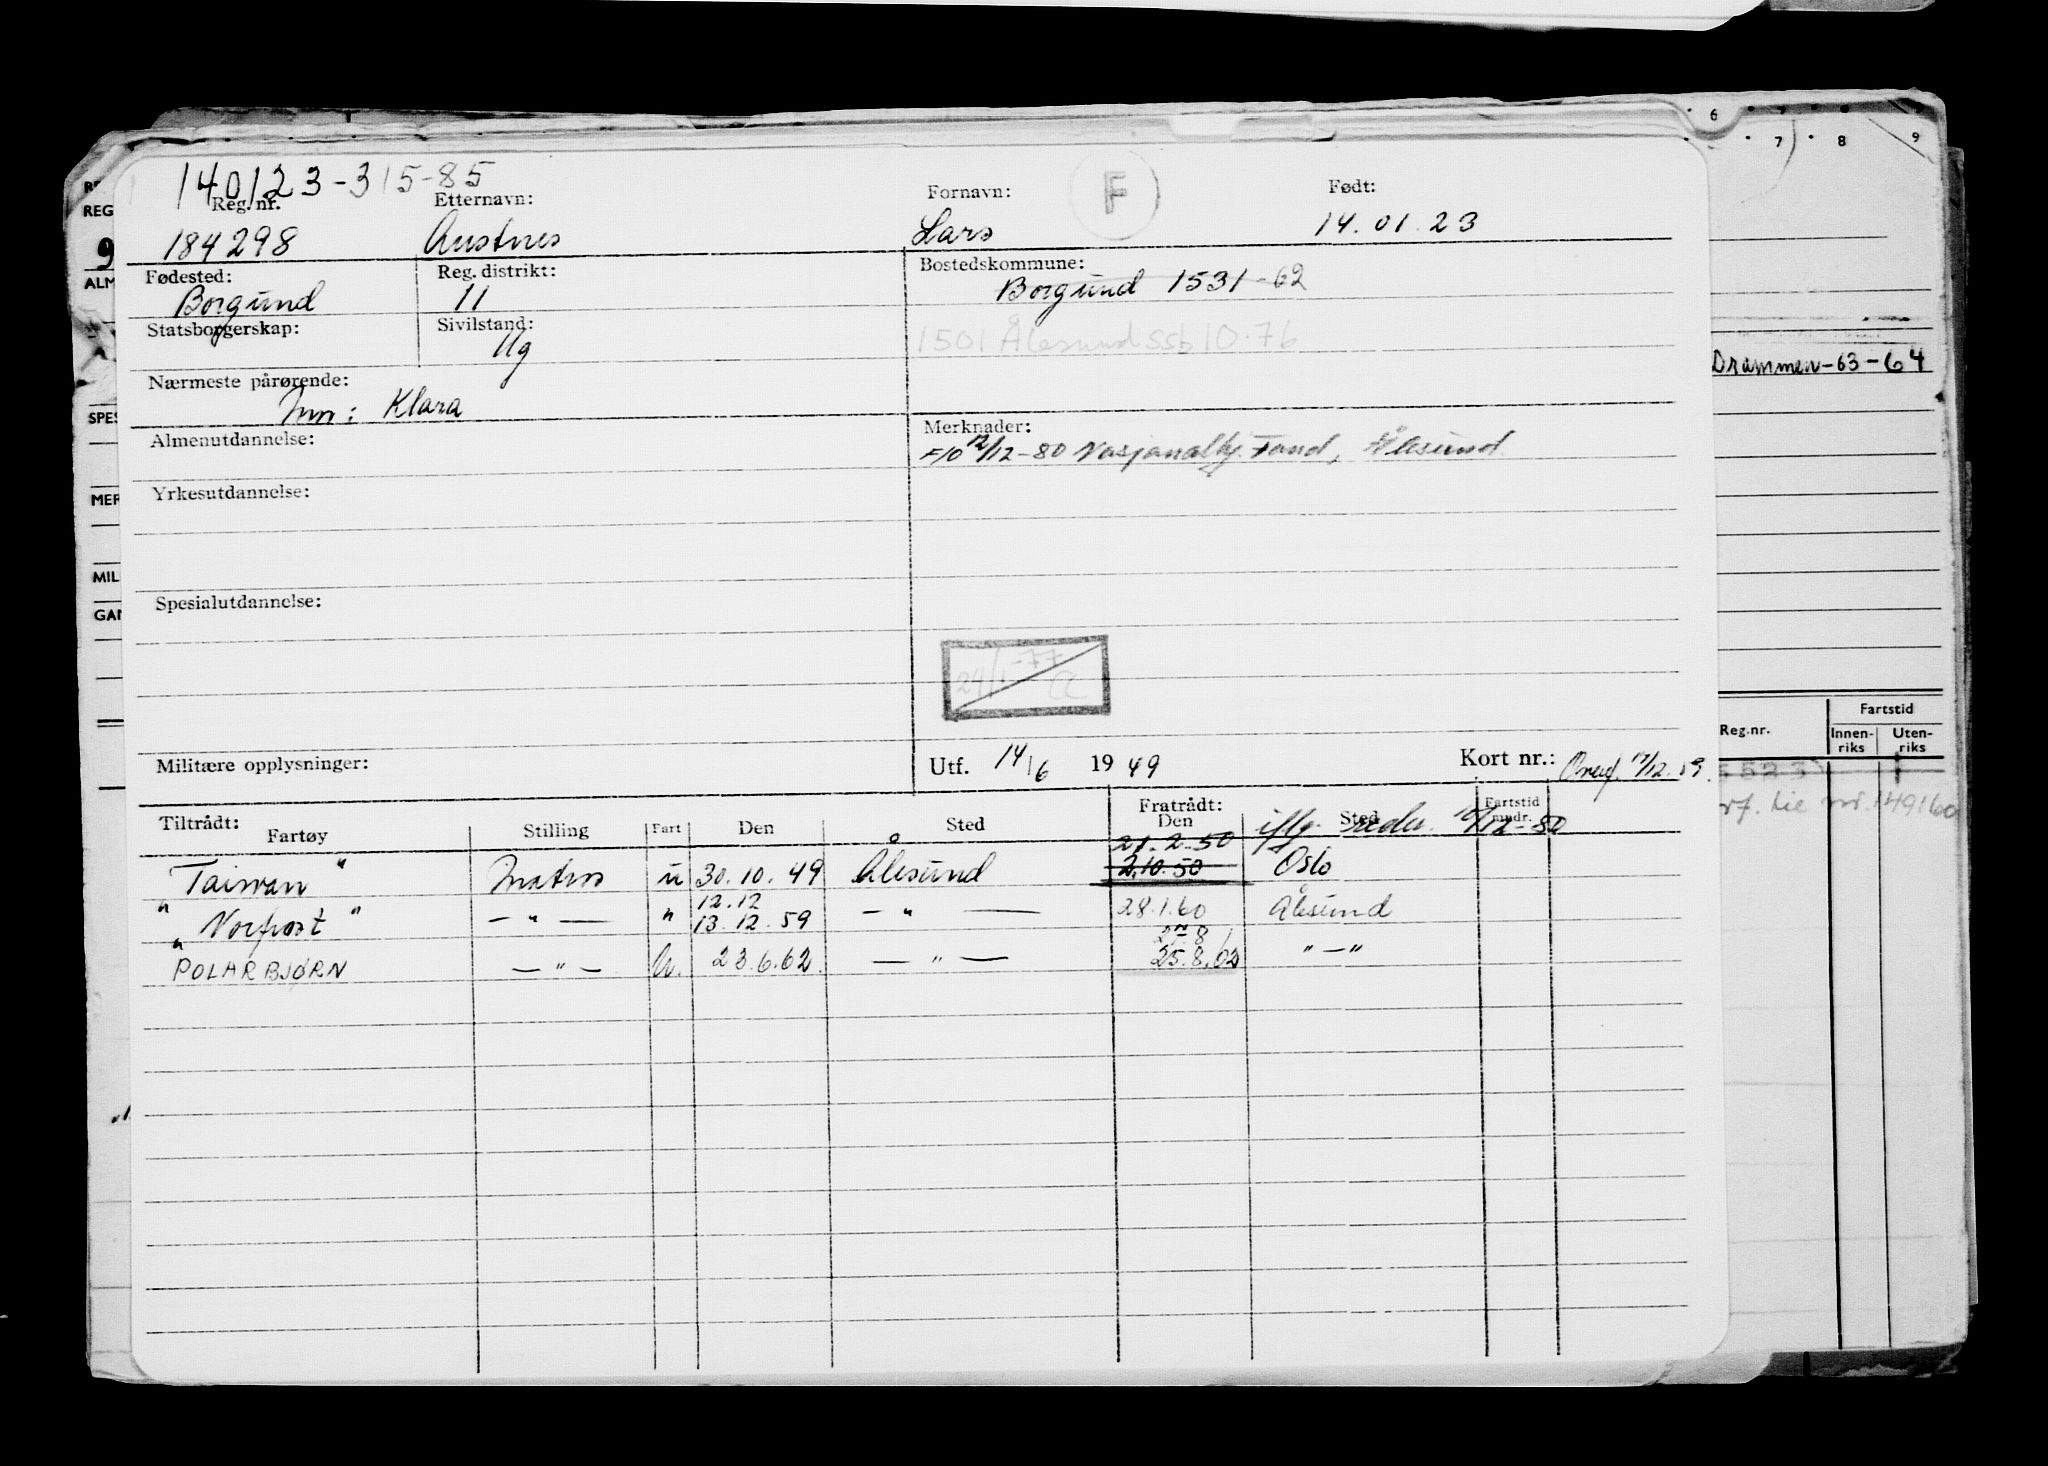 140123-315-85
Reg. nr. Etternavn: Fornavn: F Født:
184298 Austnes Lars 14.01.23
Fødested: Reg. distrikt: Bostedskommune:
Borgund 11 Borgund 1531-62
Statsborgerskap: Sivilstand:
Ug 1501 Ålesund SSb 10.76
Nærmeste pårørende:
Mor: Klara
Almenutdannelse: Merknader:
F10 12/12-80 Nasjonalhj. Fond, Ålesund
Yrkesutdannelse:
Spesialutdannelse:
24/1-77
Militære opplysninger: Utf. 14/6 1949 Kort nr.:
Tiltrådt: Fratrådt:
Fartøy Stilling Fart Den Sted Den Sted Fartstid mndr.
iflg. reder. 12-80
21.2.50
"Taiwan" Matros u 30.10.49 Ålesund 2.10.50 Oslo
12.12
"Norfrost" — " — " 13.12.59 — " — 28.1.60 Ålesund
27.8
"POLARBJØRN — " — 23.6.62. — " — 25.8.62 " — "
6 7 8
7 8 9
REG
9
ALM
SPES
MER
MIL
GAN
Drammen-63-64
Reg.nr. Fartstid
Innen-riks Uten-riks
5523
149160